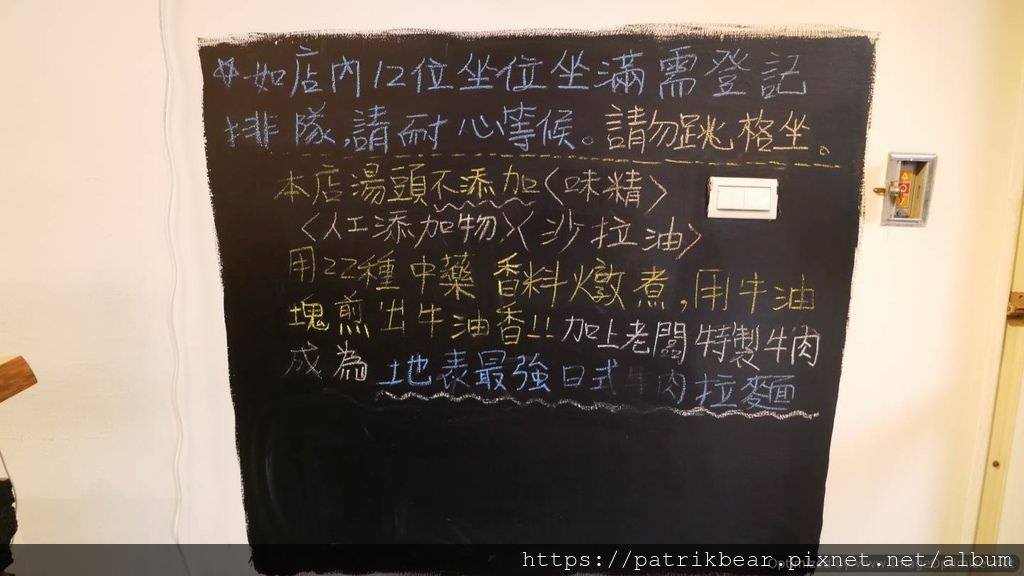 *如店內12位坐位坐滿需登記
排隊,請耐心等候。請勿跳格坐。
本店湯頭不添加〈味精〉
〈人工添加物〉〈沙拉油〉
用22種中藥香料燉煮,用牛油
塊煎出牛油香!! 加上老闆特製牛肉
成為 地表最強日式牛肉拉麵
https://patrikbear.pixnet.net/album